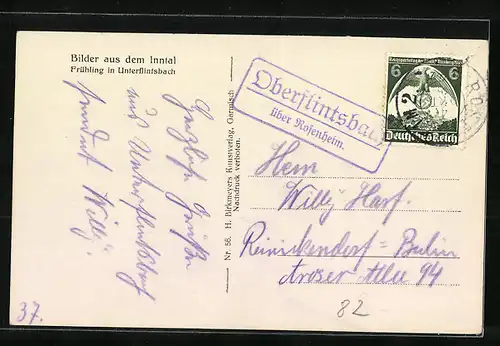 Bilder aus dem Inntal
Frühling in Unterflintsbach
Herzliche Grüße
aus Unterflintsbach
sendet Willy.
37.
Nr. 56. H. Birkmeyers Kunstverlag, Garmisch
Nachdruck verboten.
Oberflintsbach
über Rosenheim.
6 6
Deutsches Reich
Herrn
Willy Harf.
Reinickendorf=Berlin
Aroser Allee 94
82